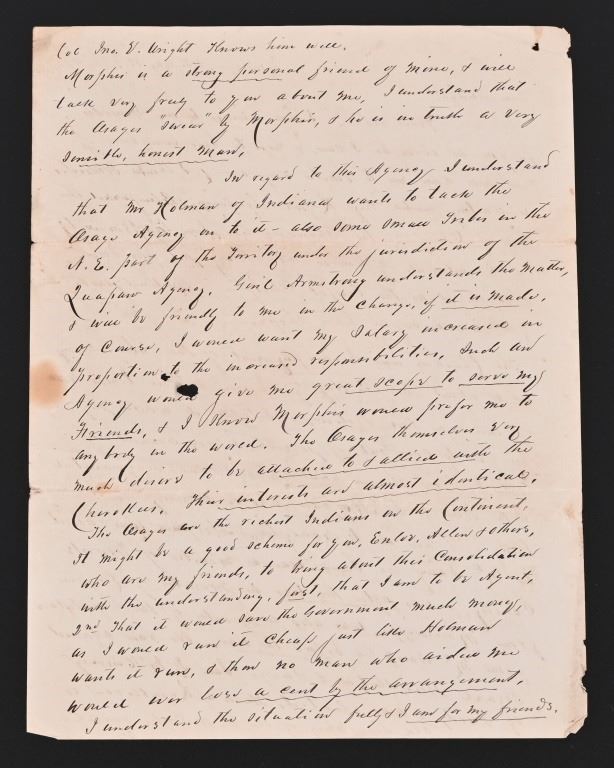 Col Jno. V. Wright Knows him well.
Morphis is a strong personal friend of mine, & will
talk very freely to you about me, I understand that
the Osages "swear" by Morphis, & he is in truth a very
sensible, honest man.
In regard to this Agency I understand
that Mr Holman of Indiana wants to tack the
Osage Agency on to it - also some small Tribes in the
N. E. part of the Territory under the jurisdiction of the
Quapaw Agency. Genl Armstrong understands the matter,
& will be friendly to me in the change, if it is made.
Of course, I would want my Salary increased in
proportion to the increased responsibilities, Such an
Agency would give me great scope to serve my
Friends, & I know Morphis would prefer me to
anybody in the world. The Osages themselves very
much desire to be attached to & allied with the
Cherokees. Their interests are almost identical.
The Osages are the richest Indians on the Continent.
It might be a good scheme for you, Enloe, Allen & others,
who are my friends, to bring about this Consolidation
with the understanding, first, that I am to be Agent,
2nd That it would save the Government much money,
as I would run it cheap just like Holman
wants it run, & then no man who aided me
would ever lose a cent by the arrangement.
I understand the situation fully & I am for my friends.